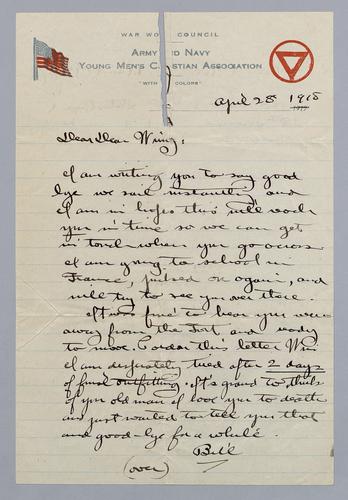 WAR WO COUNCIL
ARMY ND NAVY
YOUNG MEN'S C STIAN ASSOCIATION
"WITH COLORS"
April 28 1918
1917
Dear Dear Winy:
I am writing you to say good
bye we sail instantly and
I am in hopes this will reach
you in time so we can get
in touch when you go across
I am going to school in
France, again, and
will try to see you over there.
It was fine to hear you were
away from the Fort and ready
to move. Pardon this letter Win
I am desperately tired after 2 days
of final outfitting. It's grand to think
of you old man, I love you to death
and just wanted to tell you that
and good-bye for a while.
Bill
(over)